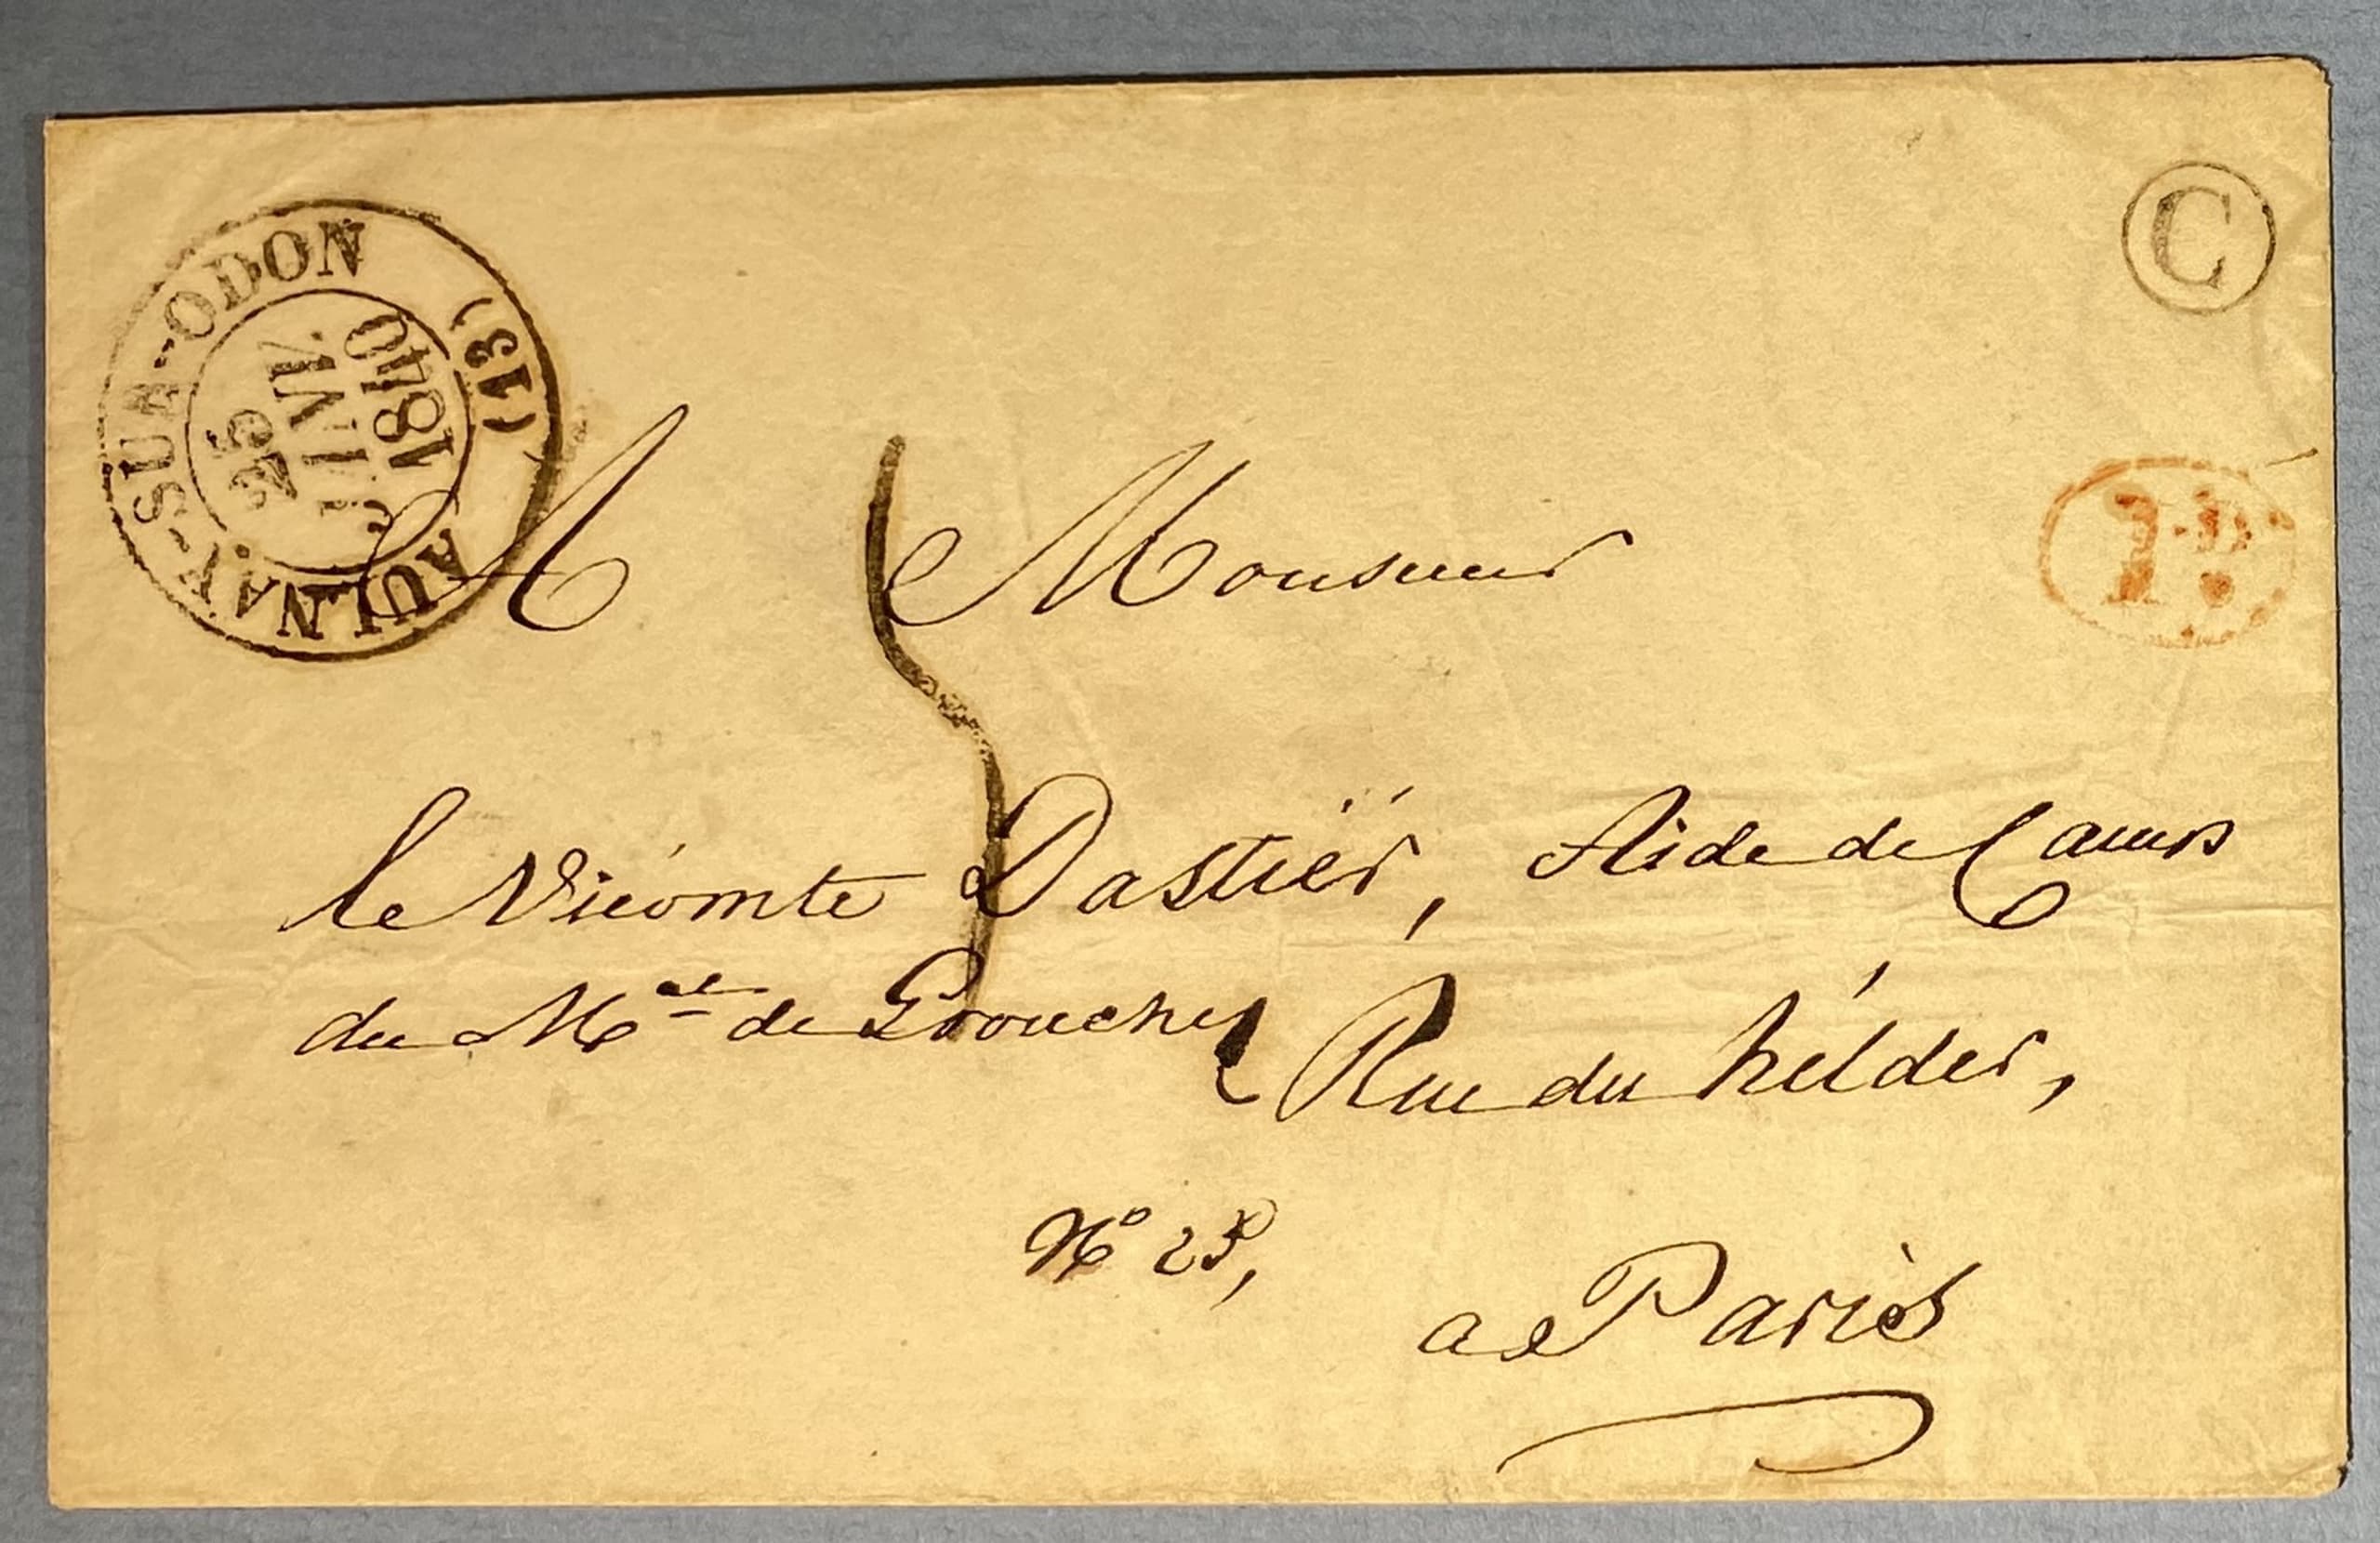 AULNAY-SUR-ODON
(13)
25
JANV.
1840
C
1.D.
A Monsieur
5
le Vicomte Dastier, Aide de Camp
du Mal de Grouchy Rue du hélder,
N° 25,
a Paris